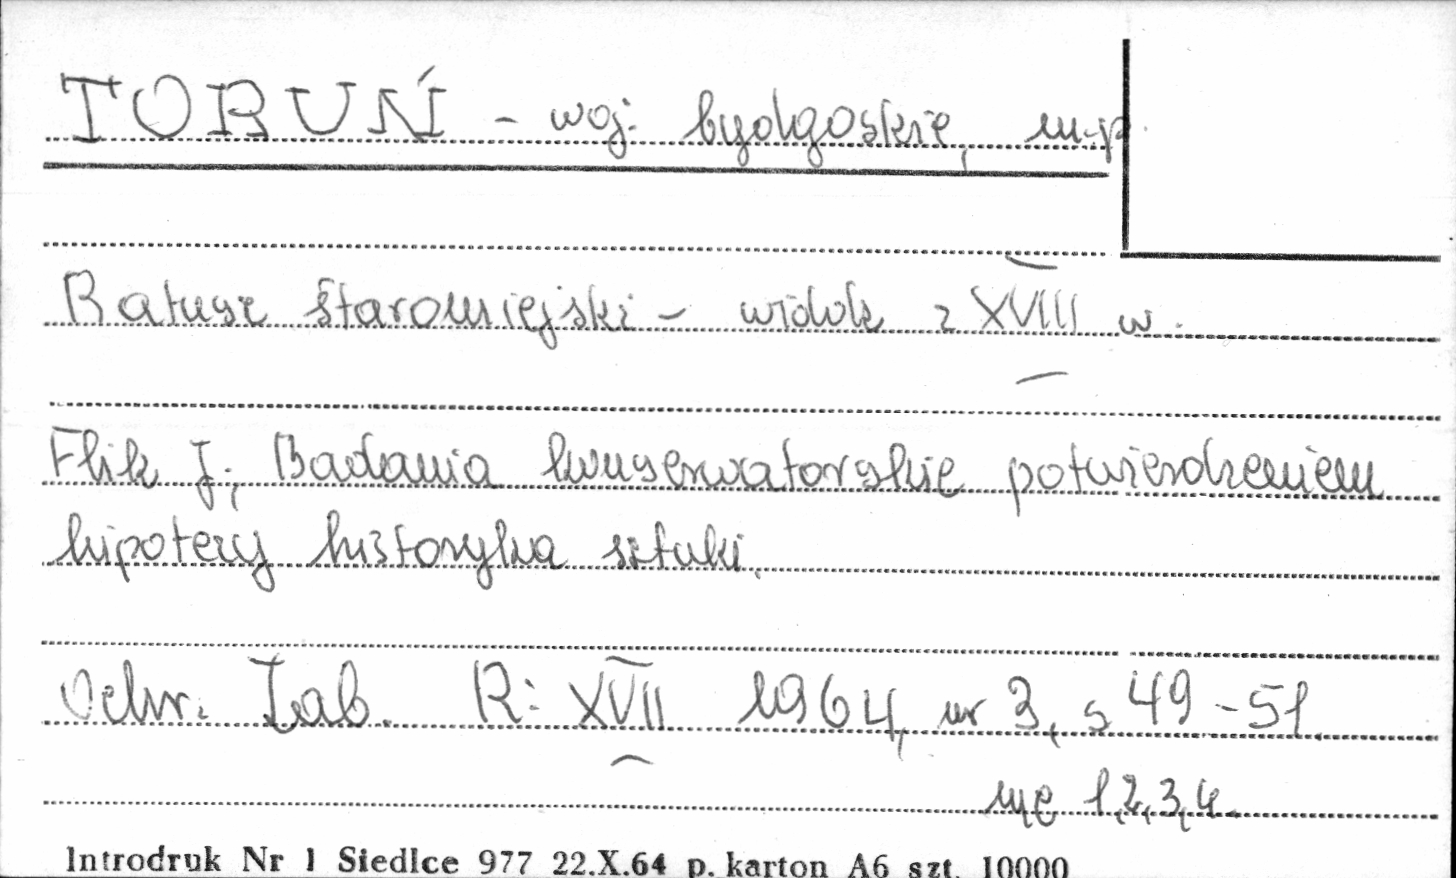 TORUŃ - woj. bydgoskie, m-p
Ratusz staromiejski - widok z XVIII w.
Flik J, Badania konserwatorskie potwierdzeniem
hipotezy historyka sztuki.
Ochr. Zab. R: XVII 1964, nr 3, s 49-51.
ryc 1,2,3,4.
Introdruk Nr 1 Siedlce 977 22.X.64 p. karton A6 szt. 10000